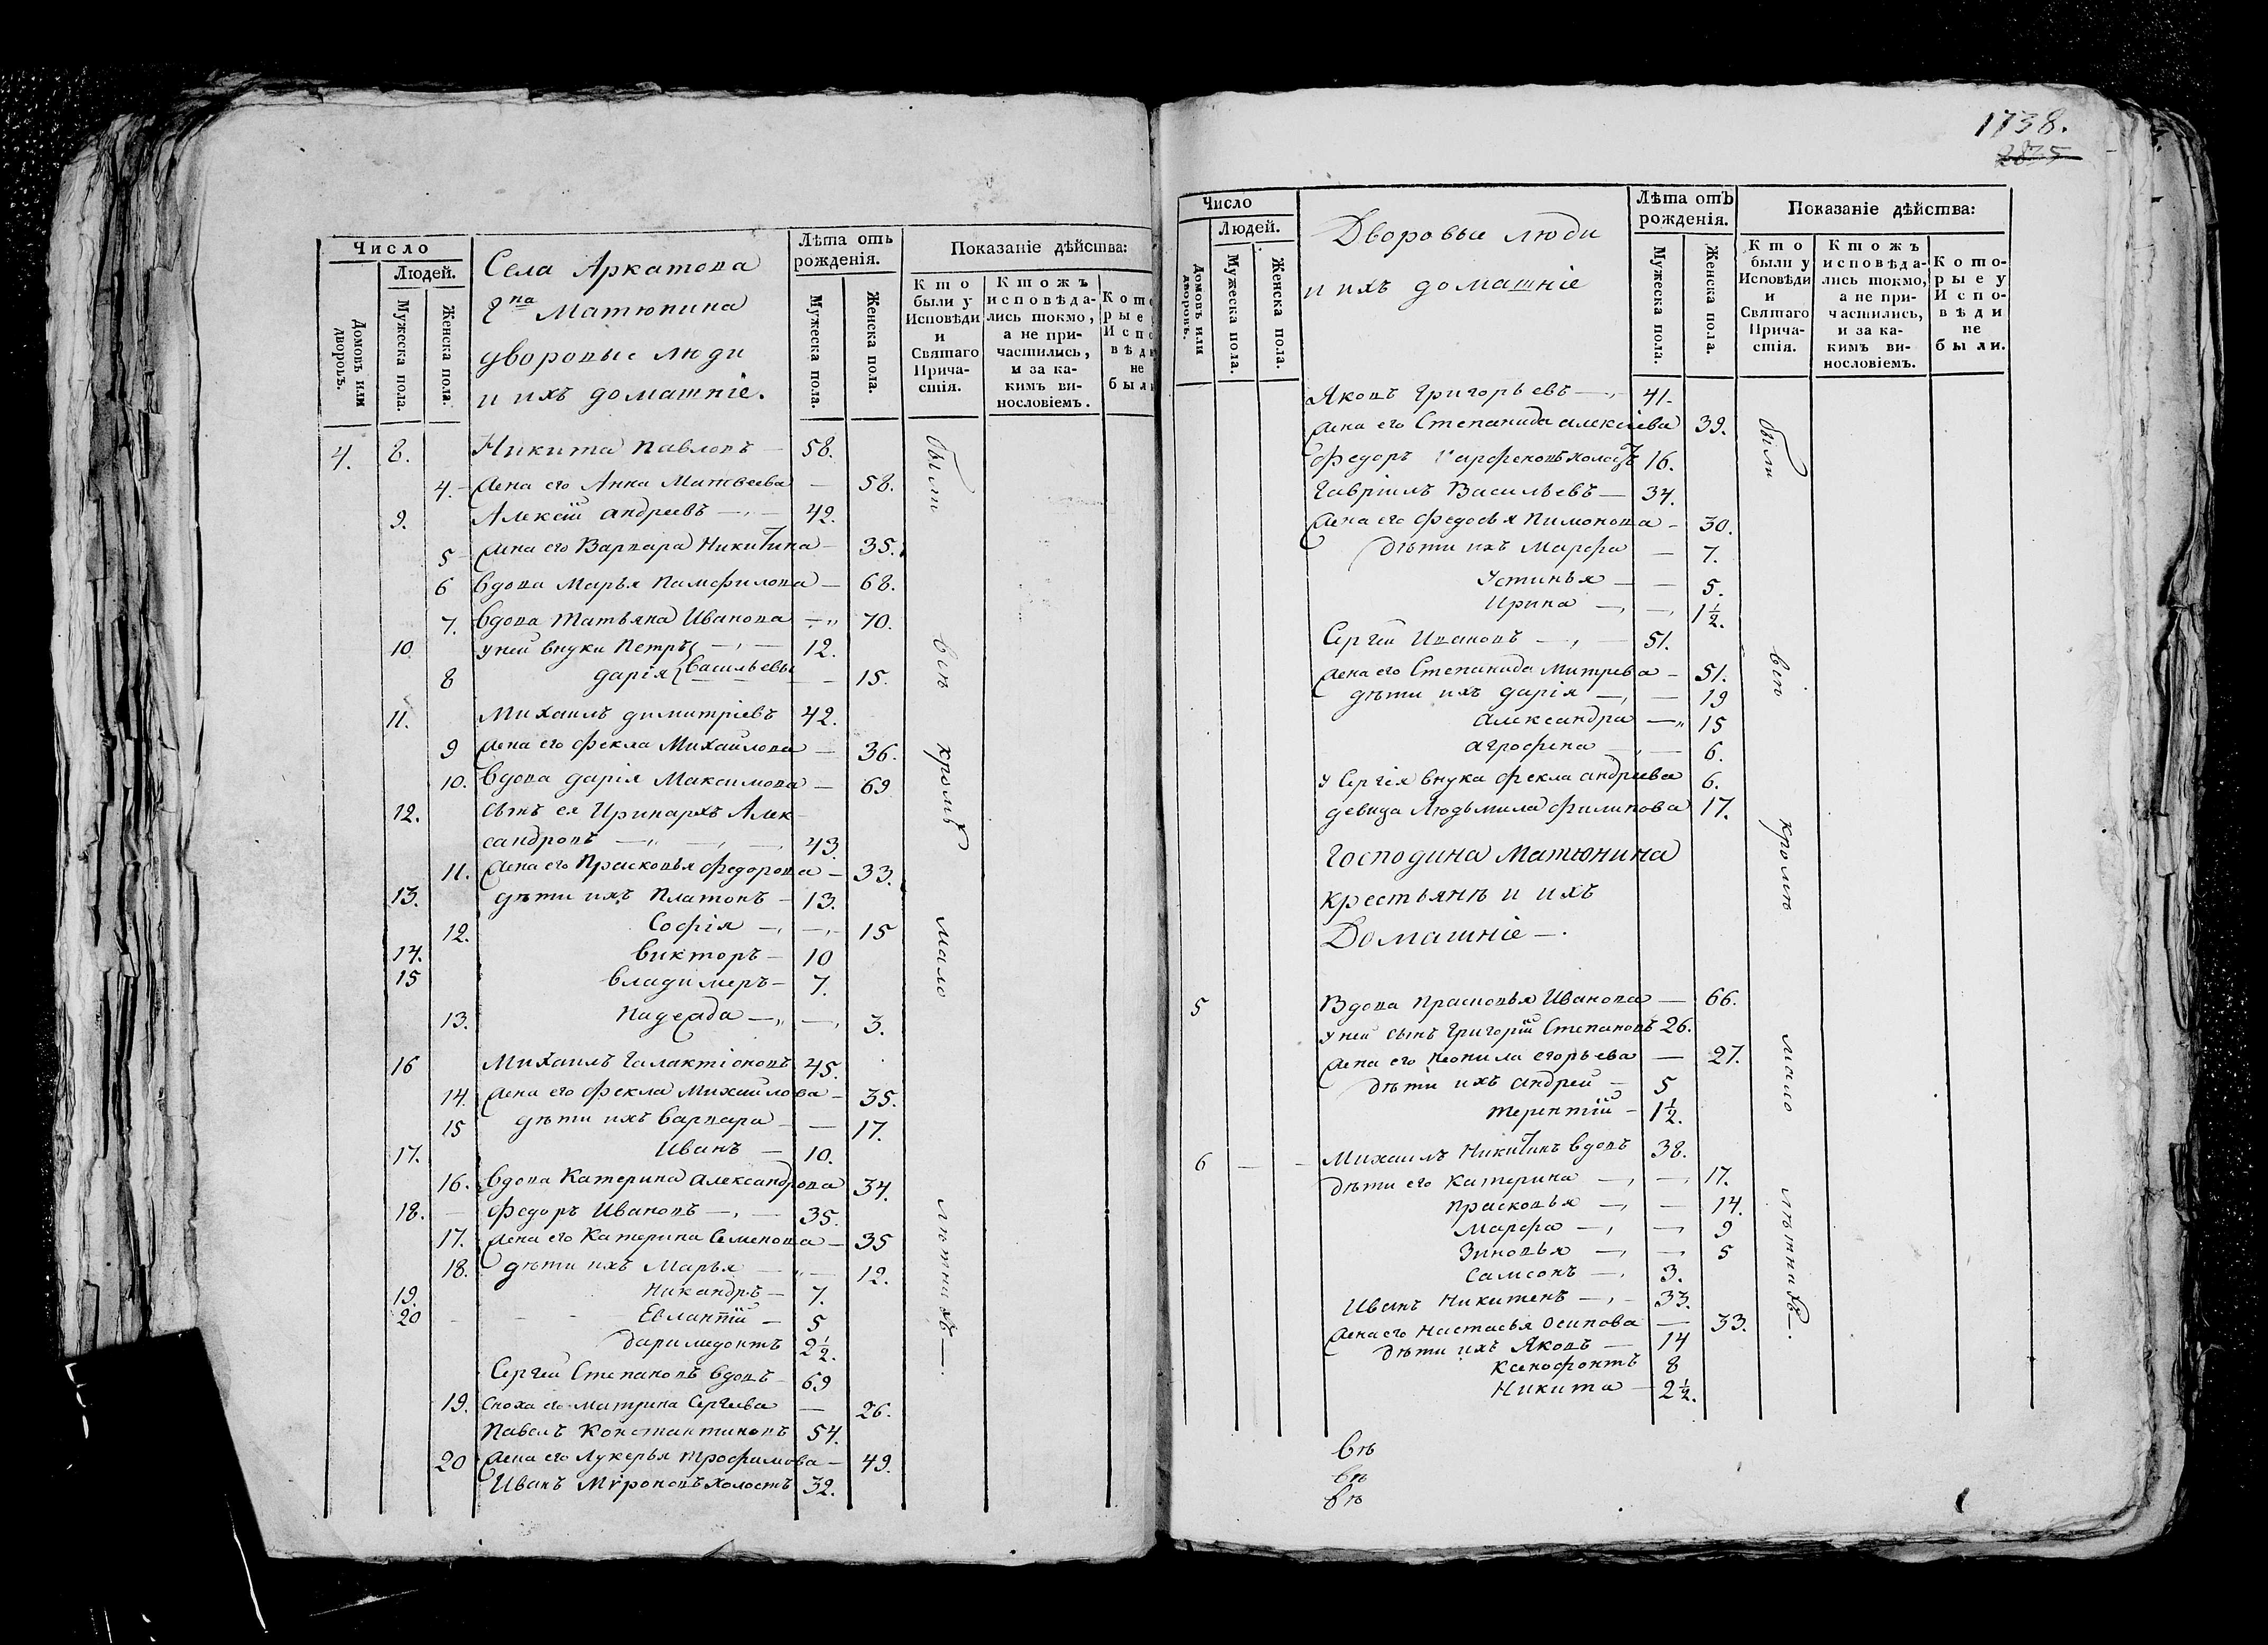 Число
Людей.
Домовъ или дворовъ.
Мужеска пола.
Женска пола.
Села Аркатова
Гна Матюнина
дворовые люди
и ихъ домашніе.
Лѣта отъ рожденія.
Мужеска пола.
Женска пола.
Показаніе дѣйства:
Кто были у Исповѣди и Святаго Причастія.
Ктожъ исповѣдались токмо, а не причастились, и за какимъ винословіемъ.
4. 8. Никита Павловъ — 58.
4. Жена его Анна Матвеева — 58.
9. Алексій Андреевъ — 42.
5 Жена его Варвара Никитина — 35.
6 Вдова Марья Памфилова — 68.
7. Вдова Татьяна Иванова — 70.
10 У ней внуки Петръ — 12.
8 Дарія Васильевы — 15.
11. Михаилъ Димитріевъ 42.
9 Жена его Фекла Михайлова — 36.
10. Вдова Дарія Максимова — 69
12. Сынъ ея Иринархъ Алек
сандровъ — 43.
11. Жена его Прасковья Федорова — 33.
13. Дѣти ихъ Платонъ — 13.
12. Софія — 15
14. Викторъ — 10
15 Владимеръ — 7.
13. Надежда — 3.
16 Михаилъ Галактіоновъ 45.
14. Жена его Фекла Михайлова — 35.
15 Дѣти ихъ Варвара — 17.
17. Иванъ — 10.
16. Вдова Катерина Александрова 34.
18. Федоръ Ивановъ — 35.
17. Жена его Катерина Семенова — 35
18. Дѣти ихъ Марья — 12.
19. Никандръ — 7.
20 Евлантій — 5
Даримедонтъ 2½.
Сергей Степановъ вдовъ 69
19. Сноха его Матрина Сергиева — 26.
Павелъ Константиновъ 54.
20 Жена его Лукерья Трофимова — 49.
Иванъ Мѵроновъ холостъ 32.
были
всѣ
кромѣ
мало
лѣтнихъ —.
1738.
2835
Число
Людей.
Домовъ или дворовъ.
Мужеска пола.
Женска пола.
Дворовые люди
и ихъ домашніе
Лѣта отъ рожденія.
Мужеска пола.
Женска пола.
Показаніе дѣйства:
Кто были у Исповѣди и Святаго Причастія.
Ктожъ исповѣдались токмо, а не причастились, и за какимъ винословіемъ.
Которые у Исповѣди не были.
Яковъ Григорьевъ — 41.
Жена его Степанида Алексіева 39.
Федоръ холостъ 16.
Гавріилъ Васильевъ — 34.
Жена его Федосья Пимонова — 30.
Дѣти ихъ Марфа — 7.
Устинья — 5.
Ирина — 1½.
Сергей Ивановъ — 51.
Жена его Степанида Митрева — 51.
Дѣти ихъ Дарія — 19
Александра — 15
Агрофена — 6.
У Сергія внука Фекла Андреева 6.
Девица Людьмила Филипова 17.
Господина Матюнина
крестьянѣ и ихъ
Домашніе —.
5 Вдова Прасковья Иванова — 66.
У ней сынъ Григорій Степановъ 26.
Жена его Неонила Егорьева — 27.
Дѣти ихъ Андрей — 5
Терентій — 1½.
6 — — Михаилъ Никитинъ вдовъ 38.
Дѣти его Катерина — 17.
Прасковья — 14.
Марфа — 9
Зиновья — 5
Самсонъ — 3.
Иванъ Никитенъ — 33.
Жена его Настасья Осипова — 33.
Дѣти ихъ Яковъ — 14
Ксенофонтъ 8
Никита — 2½.
были
всѣ
кромѣ
мало
лѣтнихъ —.
Въ
въ
въ